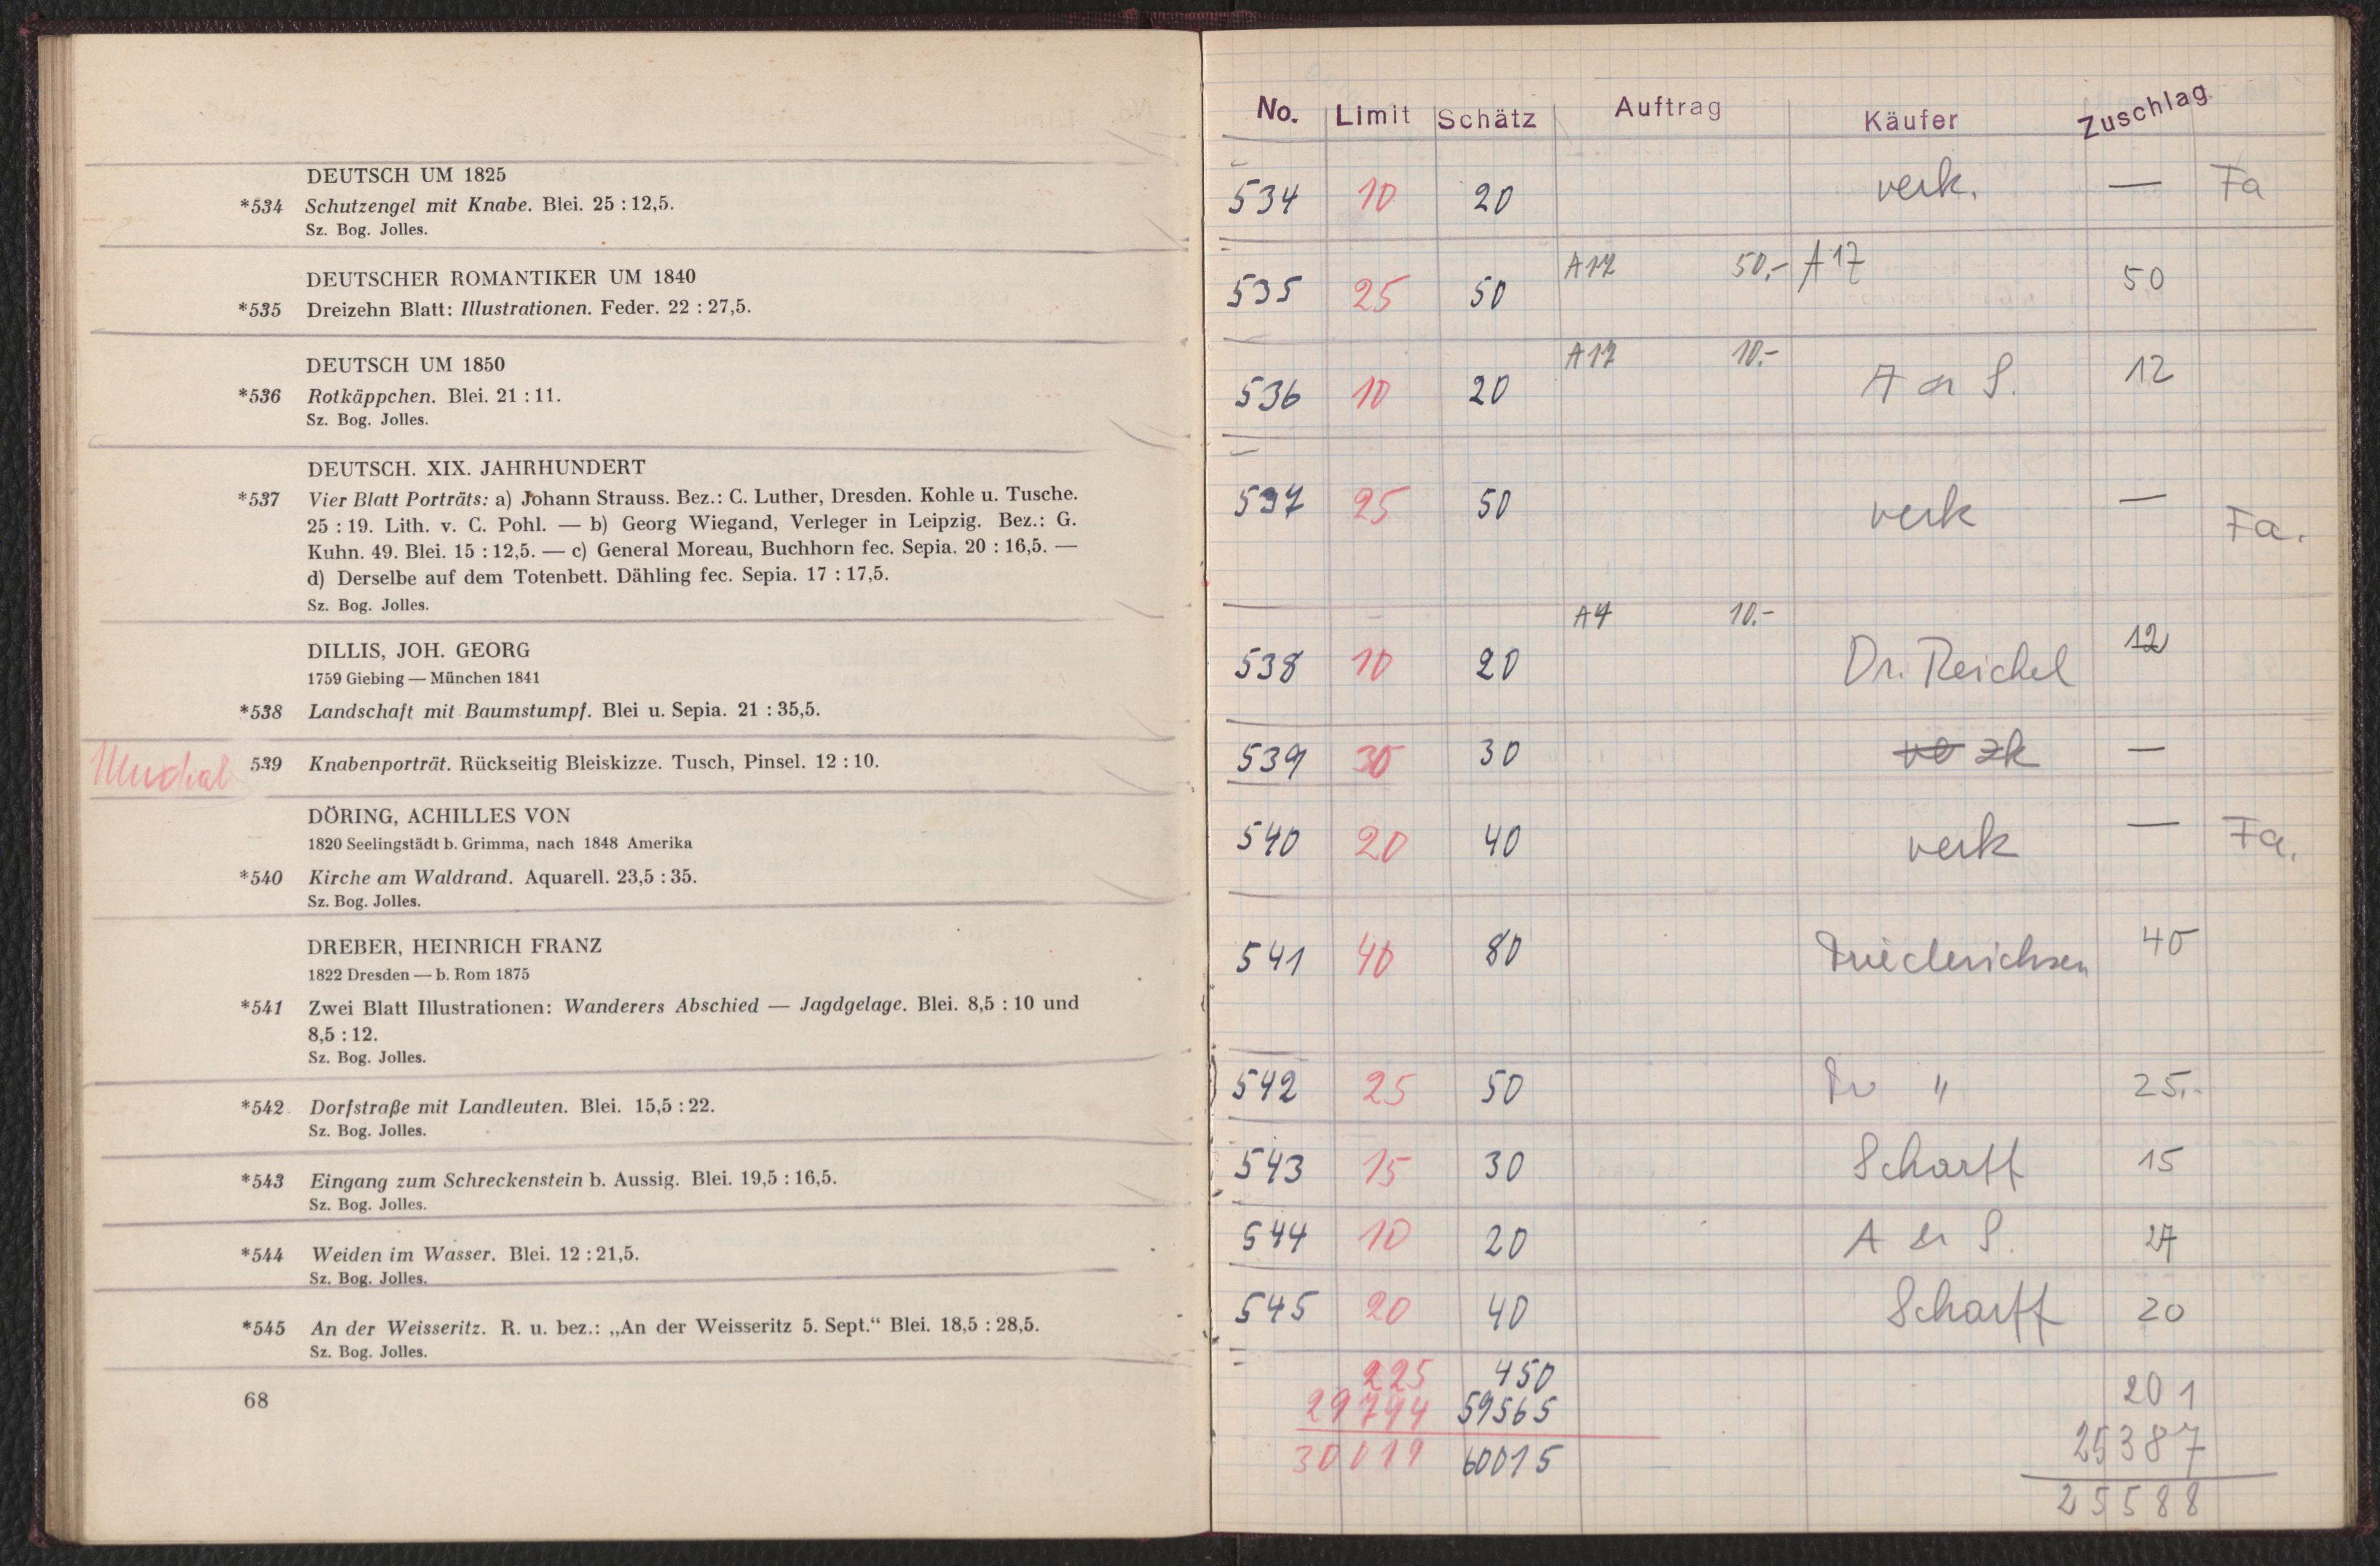 DEUTSCH UM 1825
*534 Schutzengel mit Knabe. Blei. 25 : 12,5.
Sz. Bog. Jolles.
DEUTSCHER ROMANTIKER UM 1840
*535 Dreizehn Blatt: Illustrationen. Feder. 22 : 27,5.
DEUTSCH UM 1850
*536 Rotkäppchen. Blei. 21 : 11.
Sz. Bog. Jolles.
DEUTSCH. XIX. JAHRHUNDERT
*537 Vier Blatt Porträts: a) Johann Strauss. Bez.: C. Luther, Dresden. Kohle u. Tusche.
25 : 19. Lith. v. C. Pohl. — b) Georg Wiegand, Verleger in Leipzig. Bez.: G.
Kuhn. 49. Blei. 15 : 12,5. — c) General Moreau, Buchhorn fec. Sepia. 20 : 16,5. —
d) Derselbe auf dem Totenbett. Dähling fec. Sepia. 17 : 17,5.
Sz. Bog. Jolles.
DILLIS, JOH. GEORG
1759 Giebing — München 1841
*538 Landschaft mit Baumstumpf. Blei u. Sepia. 21 : 35,5.
539 Knabenporträt. Rückseitig Bleiskizze. Tusch, Pinsel. 12 : 10.
DÖRING, ACHILLES VON
1820 Seelingstädt b. Grimma, nach 1848 Amerika
*540 Kirche am Waldrand. Aquarell. 23,5 : 35.
Sz. Bog. Jolles.
DREBER, HEINRICH FRANZ
1822 Dresden — b. Rom 1875
*541 Zwei Blatt Illustrationen: Wanderers Abschied — Jagdgelage. Blei. 8,5 : 10 und
8,5 : 12.
Sz. Bog. Jolles.
*542 Dorfstraße mit Landleuten. Blei. 15,5 : 22.
Sz. Bog. Jolles.
*543 Eingang zum Schreckenstein b. Aussig. Blei. 19,5 : 16,5.
Sz. Bog. Jolles.
*544 Weiden im Wasser. Blei. 12 : 21,5.
Sz. Bog. Jolles.
*545 An der Weisseritz. R. u. bez.: „An der Weisseritz 5. Sept.“ Blei. 18,5 : 28,5.
Sz. Bog. Jolles.
68
No. Limit Schätz Auftrag Käufer Zuschlag
534 10 20 verk. — Fa
535 25 50 A17 50,- A17 50
536 10 20 A17 10.- A S. 12
537 25 50 verk — Fa.
538 10 20 A4 10.- Dr. Reichel 12
539 30 30 zk —
540 20 40 verk — Fa.
541 40 80 40
542 25 50 " 25.-
543 15 30 Scharff 15
544 10 20 A S. 27
545 20 40 Scharff 20
225 450 201
29794 59565 25387
30019 60015 25588